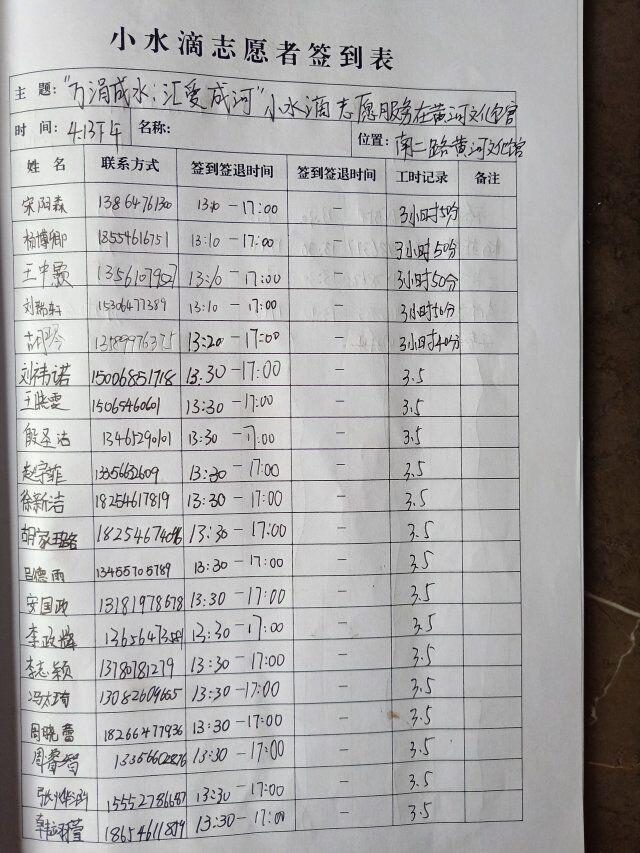 小水滴志愿者签到表
主 题: "万涓成水;汇爱成河"小水滴志愿服务在黄河文化馆
时 间: 4.13下午 名称: 位置: 南二路黄河文化馆
姓 名 联系方式 签到签退时间 签到签退时间 工时记录 备注
宋阳森 13864761300 13:10 -17:00 - 3小时50分
杨博卿 18554616751 13:10 -17:00 - 3小时50分
王中颢 13561079527 13:10 -17:00 - 3小时50分
刘瑞轩 15306477389 13:10 -17:00 - 3小时50分
胡琴 13189976375 13:20 -17:00 - 3小时40分
刘祎诺 15006851718 13:30 -17:00 - 3.5
王晓雯 15065460601 13:30 -17:00 - 3.5
殷圣洁 13465290101 13:30 -17:00 - 3.5
赵学菲 13356632609 13:30 -17:00 - 3.5
徐新洁 18254617819 13:30 -17:00 - 3.5
胡家珞 18254674096 13:30 -17:00 - 3.5
吕德雨 13455705789 13:30 -17:00 - 3.5
安国政 13181978678 13:30 -17:00 - 3.5
李政 13:30 -17:00 - 3.5
李志颖 13780781279 13:30 -17:00 - 3.5
冯太琦 13082609665 13:30 -17:00 - 3.5
周晓蕾 18266477936 13:30 -17:00 - 3.5
周睿智 13356602876 13:30 -17:00 - 3.5
张 15552786687 13:30 -17:00 - 3.5
韩翊萱 18654611879 13:30 -17:00 - 3.5